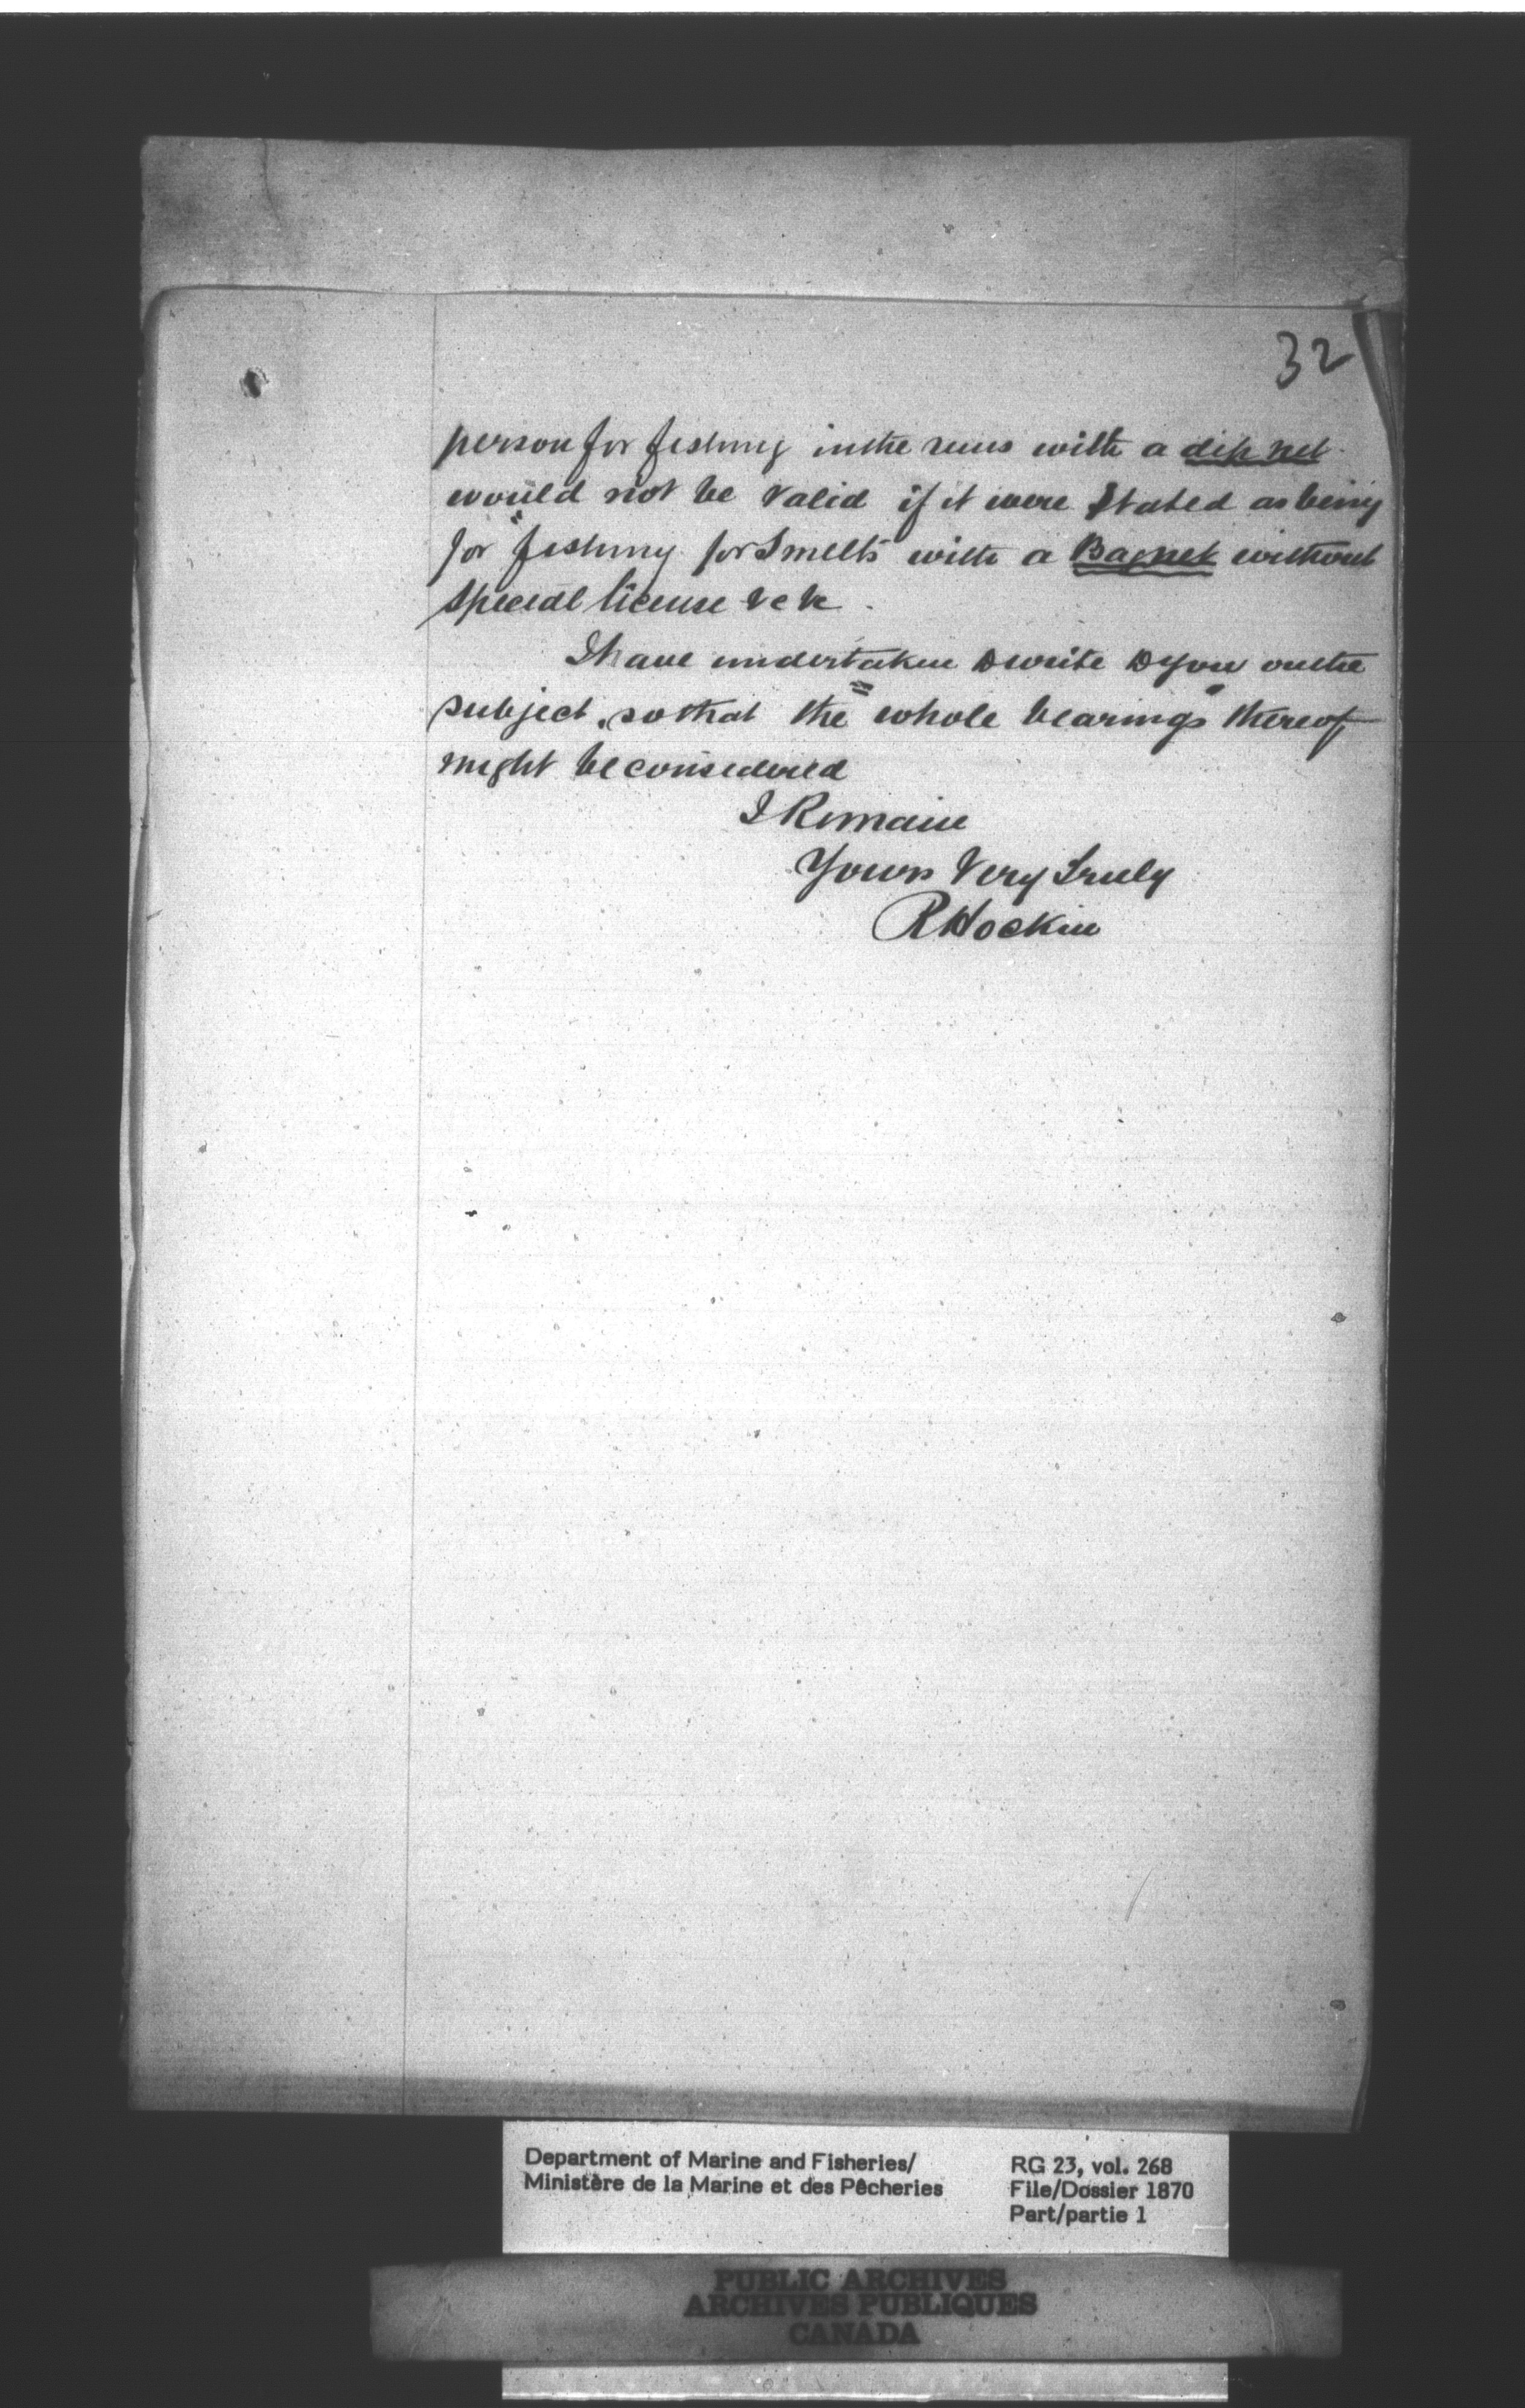 32
person for fishing in the runs with a dip net
would not be valid if it were stated as being
for "fishing for Smelts with a Bagnet without
special license &c &c.
I have undertaken to write to you on the
subject, so that the whole bearings thereof
might be considered
I Remain
Yours Very Truly
R Hockin
Department of Marine and Fisheries/
Ministère de la Marine et des Pêcheries
RG 23, vol. 268
File/Dossier 1870
Part/partie 1
PUBLIC ARCHIVES
ARCHIVES PUBLIQUES
CANADA